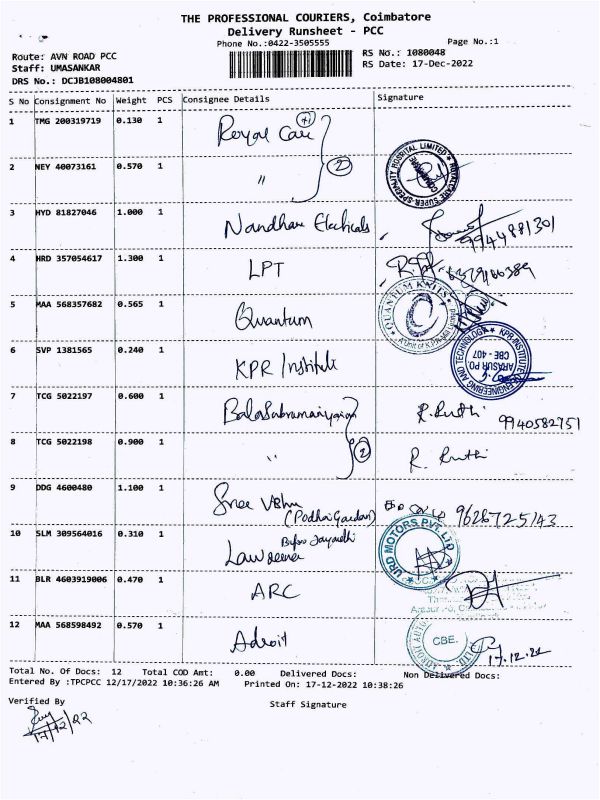 THE PROFESSIONAL COURIERS, Coimbatore
Delivery Runsheet - PCC
Phone No.:0422-3505555
Page No.:1
Route: AVN ROAD PCC
RS No.: 1080048
Staff: UMASANKAR
RS Date: 17-Dec-2022
DRS No.: DCJB108004801
S No Consignment No Weight PCS Consignee Details Signature
1 TMG 200319719 0.130 1 Royal Care
2 NEY 40073161 0.570 1 " 2
ROYALCARE SUPER-SPECIALITY HOSPITAL LIMITED
3 HYD 81827046 1.000 1 Nandhani Electricals 9944881301
4 HRD 357054617 1.300 1 LPT
5 MAA 568357682 0.565 1 Quantum
QUANTUM KNITS
6 SVP 1381565 0.240 1 KPR Institute
KPR INSTITUTE OF ENGINEERING AND TECHNOLOGY
ARASUR PO.
CBE - 407
7 TCG 5022197 0.600 1 R. Ruthi 9940582751
8 TCG 5022198 0.900 1 " 2 R. Ruthi
9 DDG 4600480 1.100 1 Sree Vishnu
10 SLM 309564016 0.310 1
URD MOTORS PVT. LTD
11 BLR 4603919006 0.470 1 ARC
12 MAA 568598492 0.570 1 Adroit
CBE.
17.12.22
Total No. Of Docs: 12 Total COD Amt: 0.00 Delivered Docs: Non Delivered Docs:
Entered By :TPCPCC 12/17/2022 10:36:26 AM Printed On: 17-12-2022 10:38:26
Verified By
Staff Signature
17/12/22